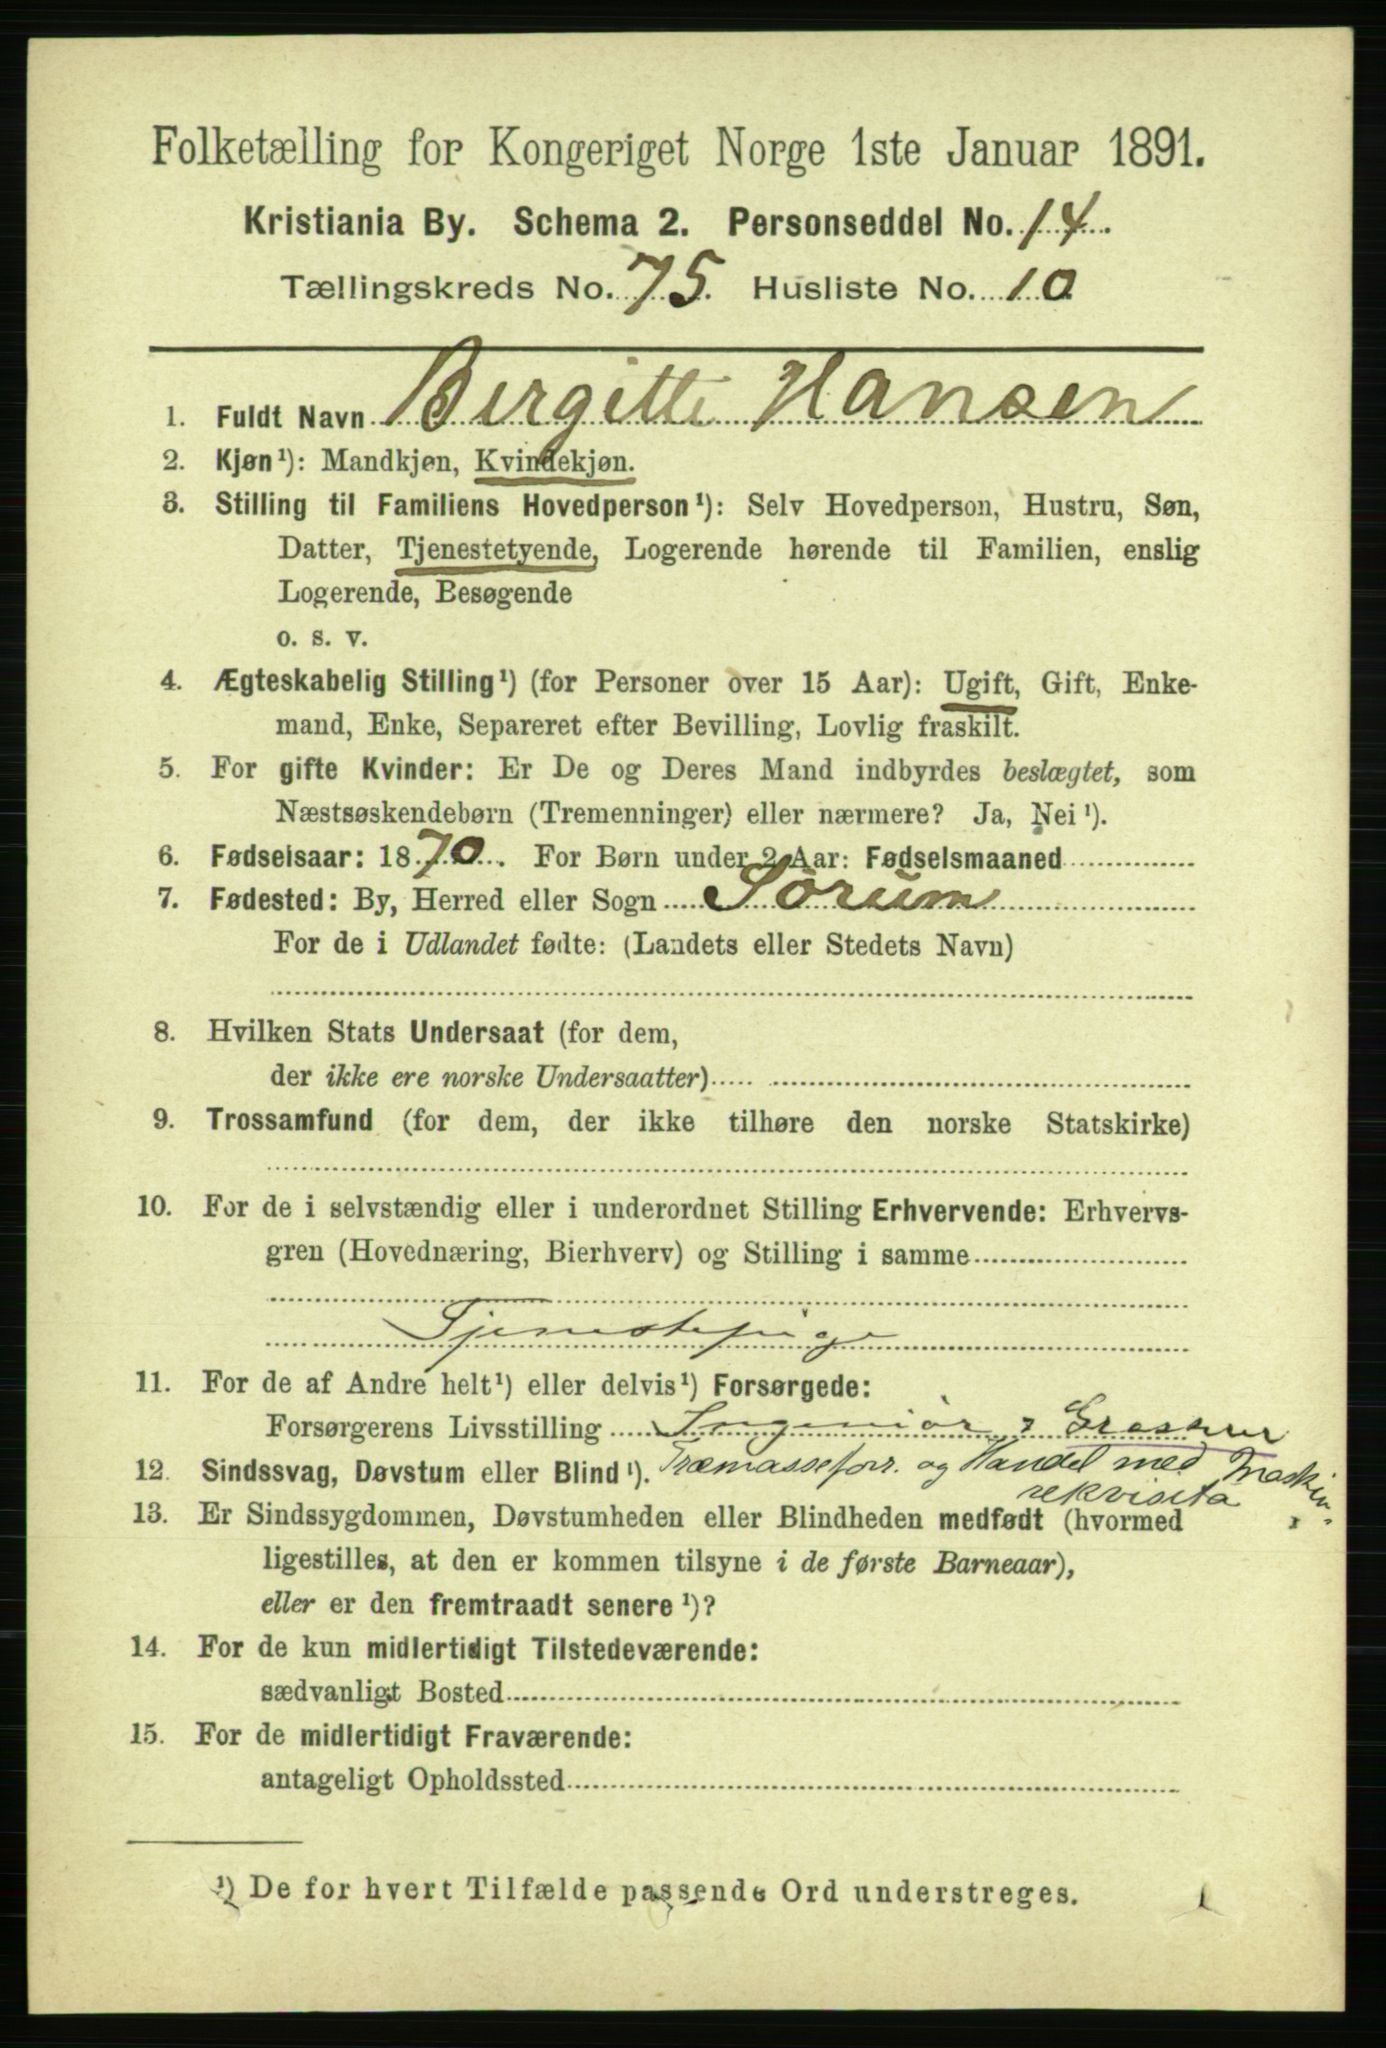 Folketælling for Kongeriget Norge 1ste Januar 1891.
Kristiania By. Schema 2. Personseddel No. 14.
Tællingskreds No. 75. Husliste No. 10
1. Fuldt Navn Birgitte Hansen
2. Kjøn¹): Mandkjøn, Kvindekjøn.
3. Stilling til Familiens Hovedperson¹): Selv Hovedperson, Hustru, Søn,
Datter, Tjenestetyende, Logerende hørende til Familien, enslig
Logerende, Besøgende
o. s. v.
4. Ægteskabelig Stilling¹) (for Personer over 15 Aar): Ugift, Gift, Enke-
mand, Enke, Separeret efter Bevilling, Lovlig fraskilt.
5. For gifte Kvinder: Er De og Deres Mand indbyrdes beslægtet, som
Næstsøskendebørn (Tremenninger) eller nærmere? Ja, Nei¹).
6. Fødselsaar: 1870. For Børn under 2 Aar: Fødselsmaaned
7. Fødested: By, Herred eller Sogn Sørum
For de i Udlandet fødte: (Landets eller Stedets Navn)
8. Hvilken Stats Undersaat (for dem,
der ikke ere norske Undersaatter)
9. Trossamfund (for dem, der ikke tilhøre den norske Statskirke)
10. For de i selvstændig eller i underordnet Stilling Erhvervende: Erhvervs-
gren (Hovednæring, Bierhverv) og Stilling i samme
Tjenestepige
11. For de af Andre helt¹) eller delvis¹) Forsørgede:
Forsørgerens Livsstilling Ingeniør
12. Sindssvag, Døvstum eller Blind¹). Træmasseforr. og Handel med Maskin-
rekvisita
13. Er Sindssygdommen, Døvstumheden eller Blindheden medfødt (hvormed
ligestilles, at den er kommen tilsyne i de første Barneaar),
eller er den fremtraadt senere¹)?
14. For de kun midlertidigt Tilstedeværende:
sædvanligt Bosted
15. For de midlertidigt Fraværende:
antageligt Opholdssted
¹) De for hvert Tilfælde passende Ord understreges.